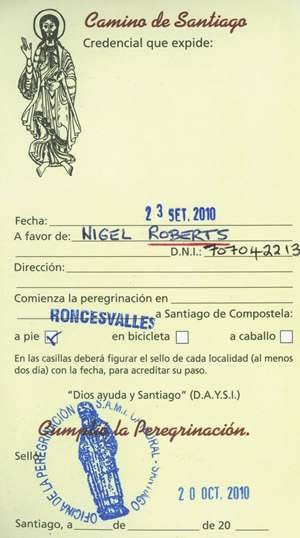 Camino de Santiago
Credencial que expide:
Fecha: 23 SET. 2010
A favor de: NIGEL ROBERTS
D.N.I.: 707042213
Dirección:
Comienza la peregrinación en
RONCESVALLES a Santiago de Compostela:
a pie en bicicleta a caballo
En las casillas deberá figurar el sello de cada localidad (al menos
dos día) con la fecha, para acreditar su paso.
"Dios ayuda y Santiago" (D.A.Y.S.I.)
Cumplió la Peregrinación.
Sello
OFICINA DE LA PEREGRINACIÓN S.A.M.I. CATEDRAL - SANTIAGO
20 OCT. 2010
Santiago, a de de 20